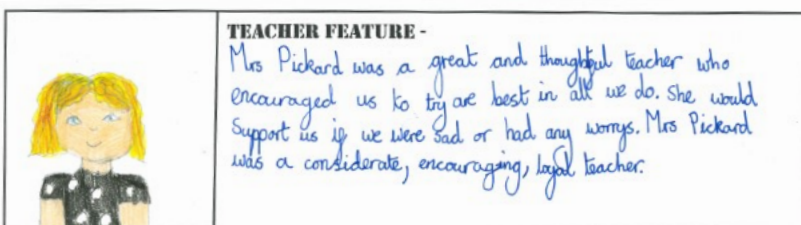 TEACHER FEATURE -
Mrs Pickard was a great and thoughtful teacher who
encouraged us to try are best in all we do. She would
Support us if we were sad or had any worrys. Mrs Pickard
was a considerate, encouraging, loyal teacher.